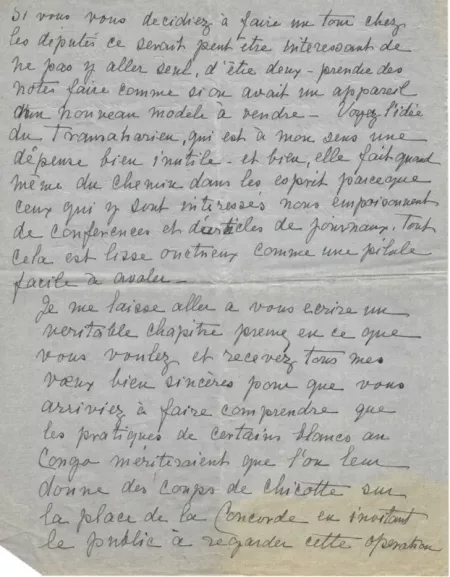 Si vous vous decidiez à faire un tour chez
les députés ce serait peut être interessant de
ne pas y aller seul, d'être deux - prendre des
notes faire comme si on avait un appareil
d'un nouveau modele à vendre - Voyez l'idée
du Transaharien, qui est à mon sens une
dépense bien inutile - et bien, elle fait quand
même du chemin dans les esprit parceque
ceux qui y sont intéressés nous empoisonnent
de conférences et d'articles de journaux. Tout
cela est lisse onctueux comme une pilule
facile à avaler -
Je me laisse aller a vous ecrire un
veritable chapitre prenez en ce que
vous voulez et recevez tous mes
vœux bien sincères pour que vous
arriviez à faire comprendre que
les pratiques de certains blancs au
Congo mériteraient que l'on leur
donne des coups de chicotte sur
la place de la Concorde en invitant
le public à regarder cette operation